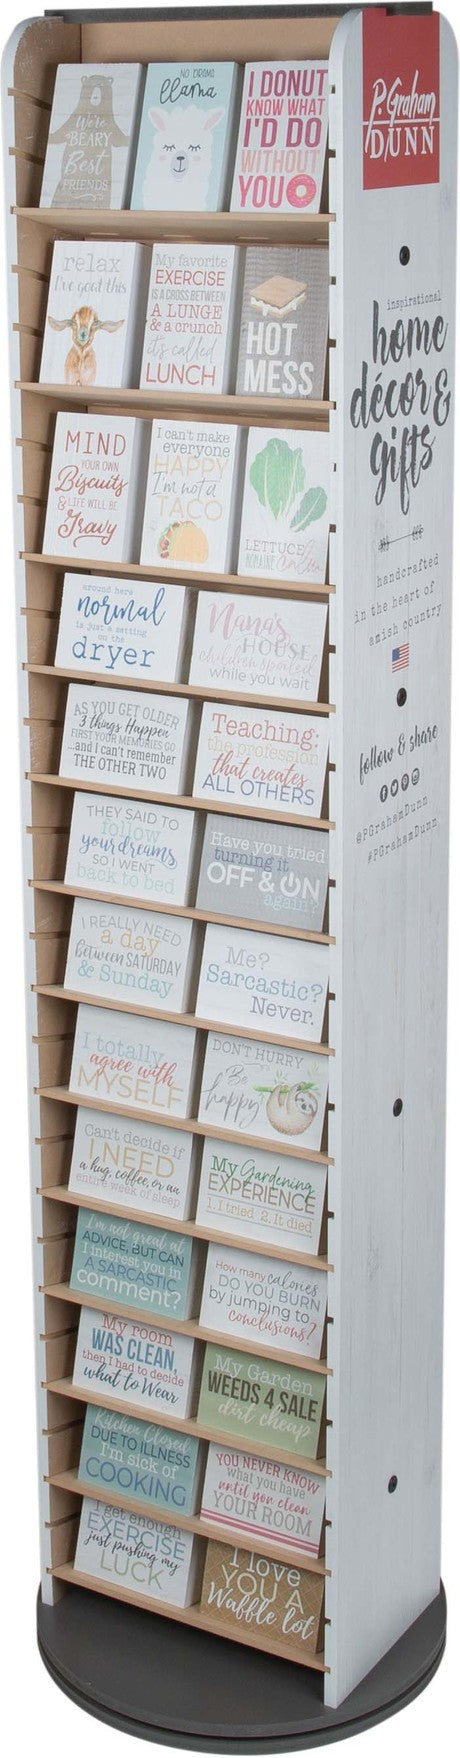 We're
BEARY
Best
FRIENDS
NO DRAMA
llama
I DONUT
KNOW WHAT
I'D DO
WITHOUT
YOU
relax
I've goat this
My favorite
EXERCISE
IS A CROSS BETWEEN
A LUNGE
& a crunch
it's called
LUNCH
HOT
MESS
MIND
YOUR OWN
Biscuits
& LIFE WILL BE
Gravy
I can't make
everyone
HAPPY
I'm not a
TACO
LETTUCE
ROMAINE Calm
around here
normal
is just a setting
on the
dryer
Nana's
HOUSE
children spoiled
while you wait
AS YOU GET OLDER
3 things Happen
FIRST YOUR MEMORIES GO
...and I can't remember
THE OTHER TWO
Teaching:
the profession
that creates
ALL OTHERS
THEY SAID TO
follow
your dreams,
SO I WENT
back to bed
Have you tried
turning it
OFF & ON
again?
I REALLY NEED
a day
between SATURDAY
& Sunday
Me?
Sarcastic?
Never.
I totally
agree with
MYSELF
DON'T HURRY
Be
happy
Can't decide if
I NEED
a hug, coffee, or an
entire week of sleep
My Gardening
EXPERIENCE
1. I tried 2. It died
I'm not great at
ADVICE, BUT CAN
I interest you in
A SARCASTIC
comment?
How many calories
DO YOU BURN
by jumping to
conclusions?
My room
WAS CLEAN,
then I had to decide
what to Wear
My Garden
WEEDS 4 SALE
dirt cheap
Kitchen Closed
DUE TO ILLNESS
I'm sick of
COOKING
YOU NEVER KNOW
what you have
until you clean
YOUR ROOM
I get enough
EXERCISE
just pushing my
LUCK
I love
YOU A
Waffle lot
P. Graham
DUNN
inspirational
home
décor &
gifts
handcrafted
in the heart of
amish country
follow & share
@PGrahamDunn
#PGrahamDunn